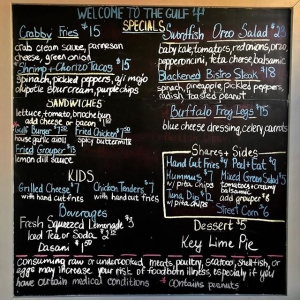 WELCOME TO THE GULF
SPECIALS
Crabby Fries $15
crab cream sauce, parmesan
cheese, green onion
Shrimp + Chorizo Tacos $15
spinach, pickled peppers, aji mojo
chipotle sour cream, purple chips
SANDWICHES
lettuce, tomato, brioche bun
add cheese or bacon
Gulf Burger
house garlic aioli
Fried Chicken
spicy buttermilk
Fried Grouper $15
lemon dill sauce
KIDS
Grilled Cheese $7
with hand cut fries
Chicken Tenders $7
with hand cut fries
Beverages
Fresh Squeezed Lemonade $3
Iced Tea or Soda
Dasani
Swordfish Oreo Salad
baby kale, tomatoes, red onions, orzo,
pepperoncini, feta cheese, balsamic
Blackened Bistro Steak $18
spinach, pineapple, pickled peppers,
radish, toasted peanut
Buffalo Frog Legs $15
blue cheese dressing, celery, carrots
Shares + Sides
Hand Cut Fries
Peel + Eat $9
Hummus $7
w/ pita chips
Tuna Dip
w/ pita chips
Mixed Green Salad
tomatoes, creamy
balsamic
add grouper
Street Corn $6
Dessert $5
Key Lime Pie
consuming raw or undercooked meats, poultry, seafood, shellfish, or
eggs may increase your risk of foodborn illness, especially if you
have certain medical conditions + contains peanuts